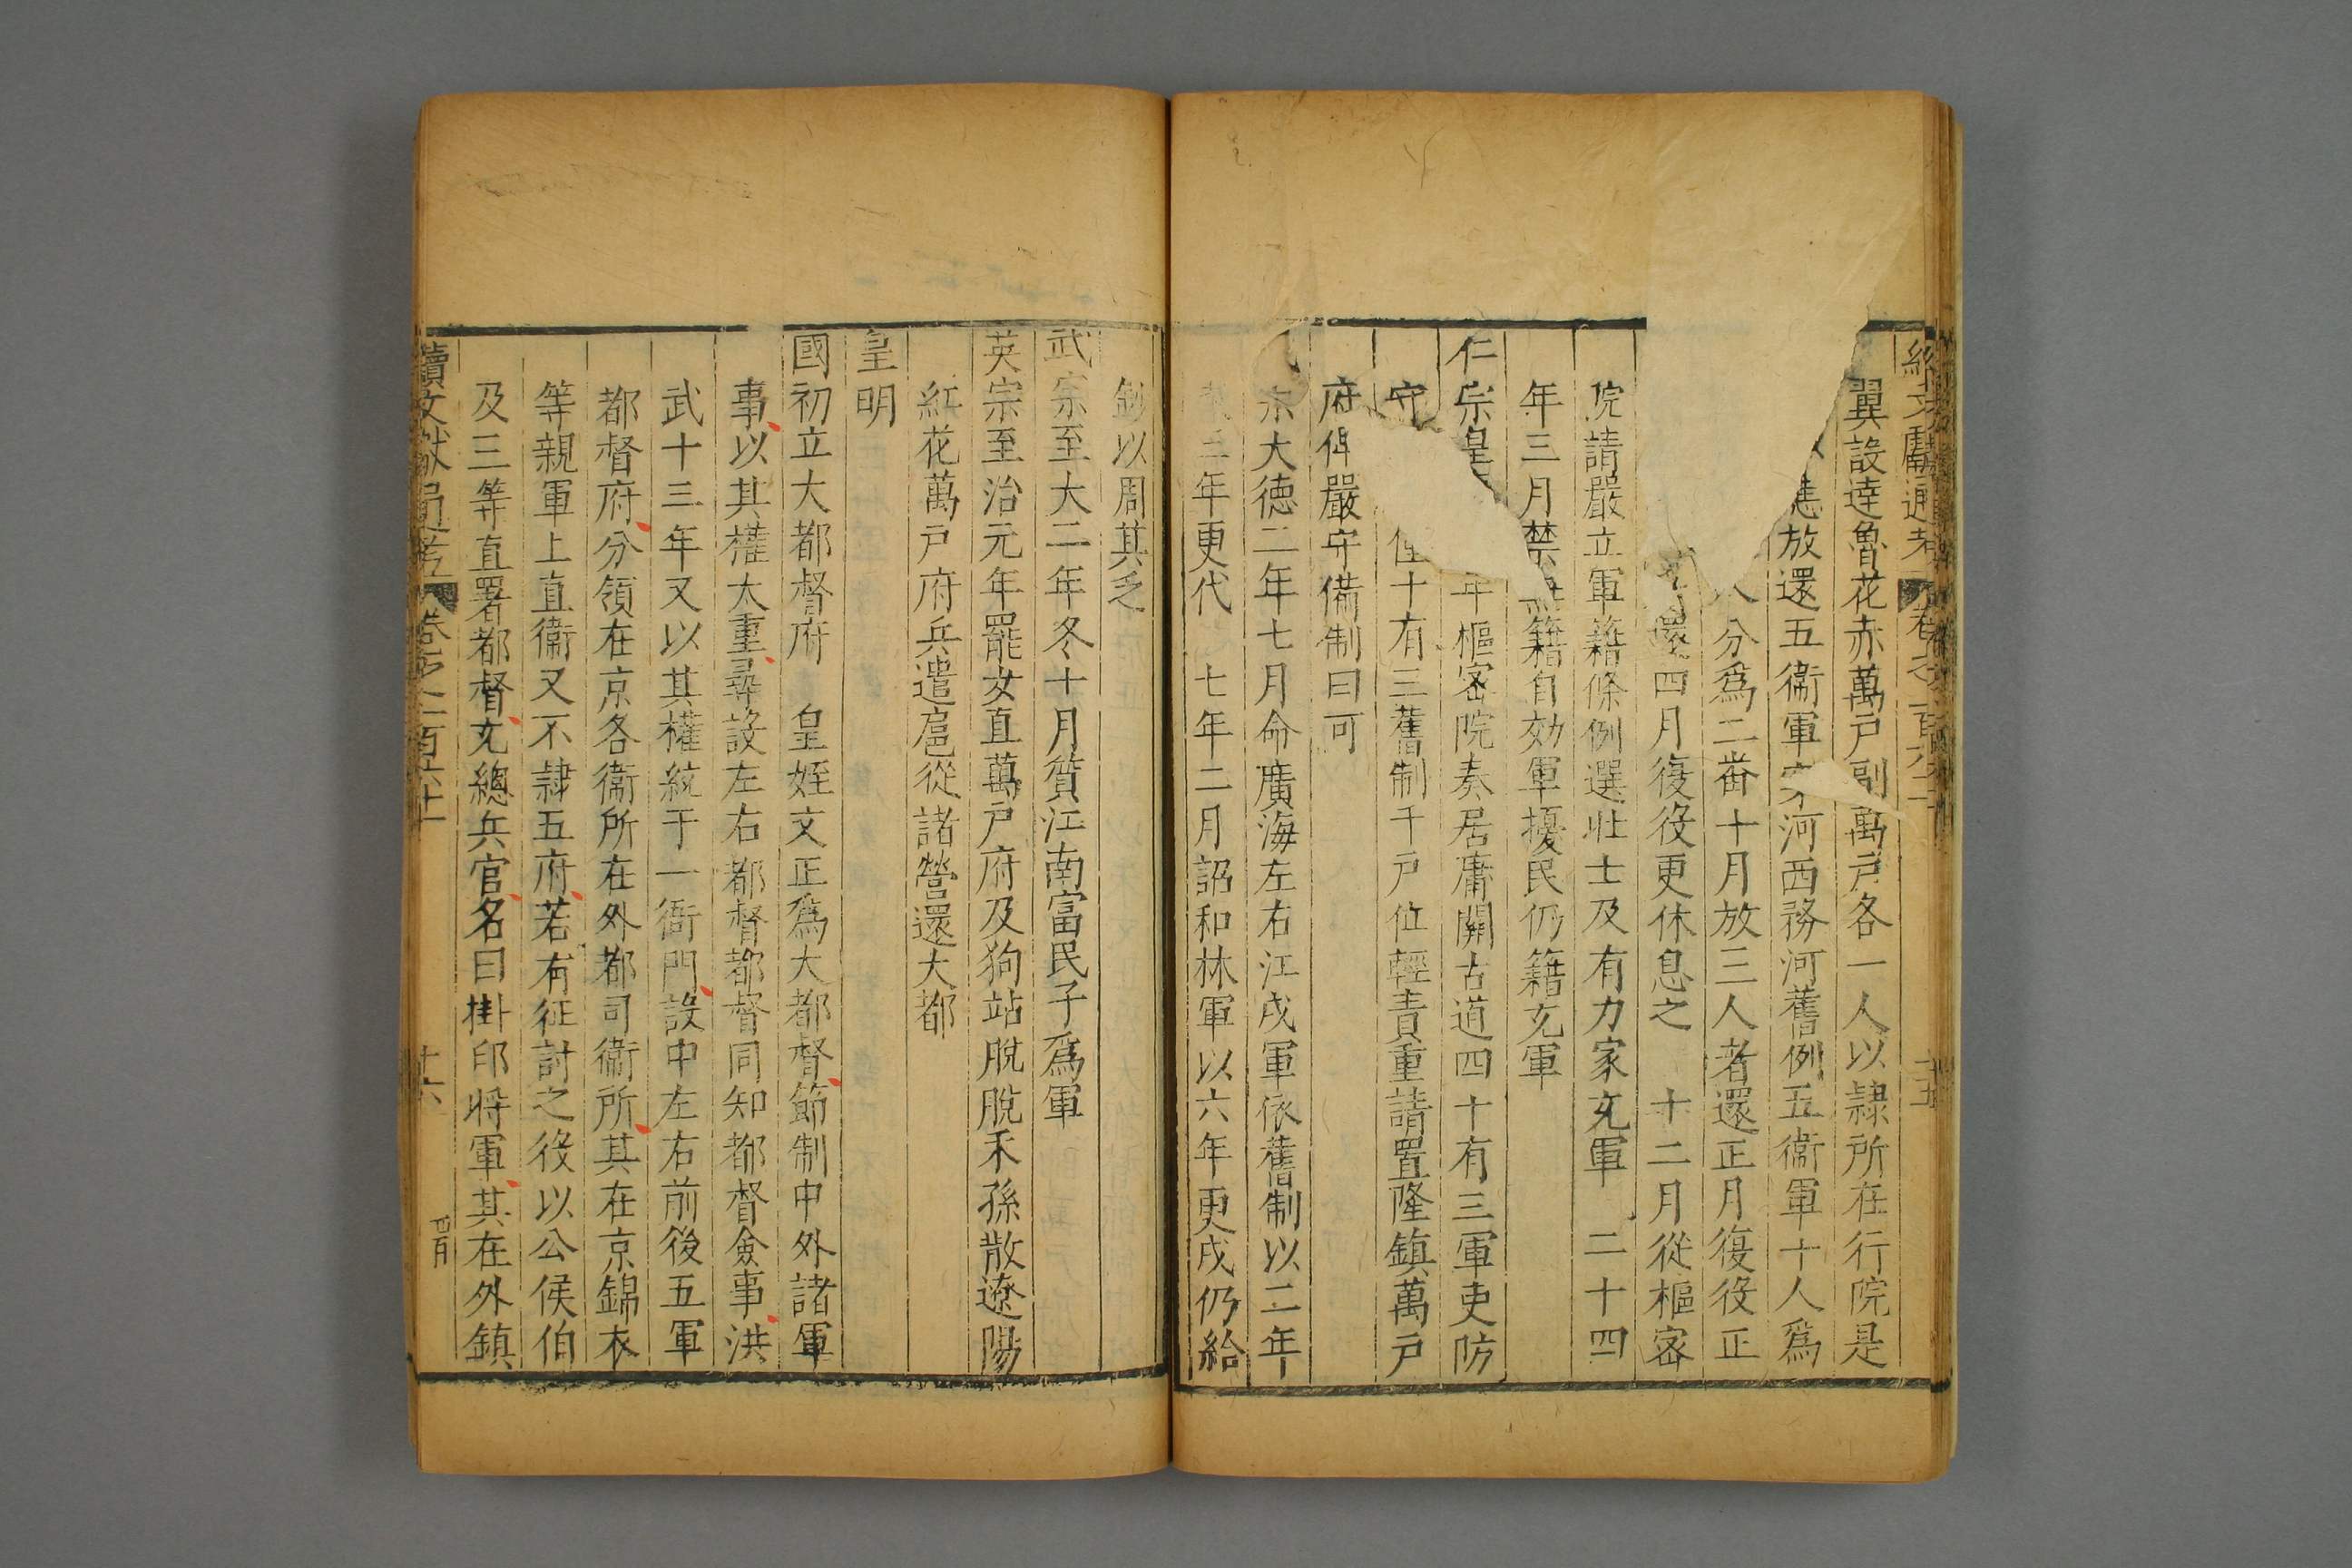 翼設達魯花赤萬戶副萬戶各一人以隷所在行院是
應放還五衞軍穿河西務河舊例五衞軍十人爲
人分爲二番十月放三人者還正月復役正
還四月復役更休息之　十二月從樞密
院請嚴立軍籍條例選壯士及有力家充軍　二十四
年三月禁　籍自効軍擾民仍籍充軍
仁宗皇　年樞密院奏居庸關古道四十有三軍吏防
守　僅十有三舊制千戶位輕責重請置隆鎮萬戶
府俾嚴守備制曰可
宗大德二年七月命廣海左右江戍軍依舊制以二年
三年更代　七年二月詔和林軍以六年更戍仍給
鈔以周其乏
武宗至大二年冬十月質江南富民子爲軍
英宗至治元年罷女直萬戶府及狗站脫脫禾孫散遼陽
紅花萬戶府兵遣扈從諸營還大都
皇明
國初立大都督府　皇姪文正爲大都督節制中外諸軍
事以其權太重尋設左右都督都督同知都督僉事洪
武十三年又以其權統于一衙門設中左右前後五軍
都督府分領在京各衞所在外都司衞所其在京錦衣
等親軍上直衞又不隷五府若有征討之役以公侯伯
及三等直署都督充總兵官名曰掛印將軍其在外鎮
續文獻通考　卷之一百六十一　十六